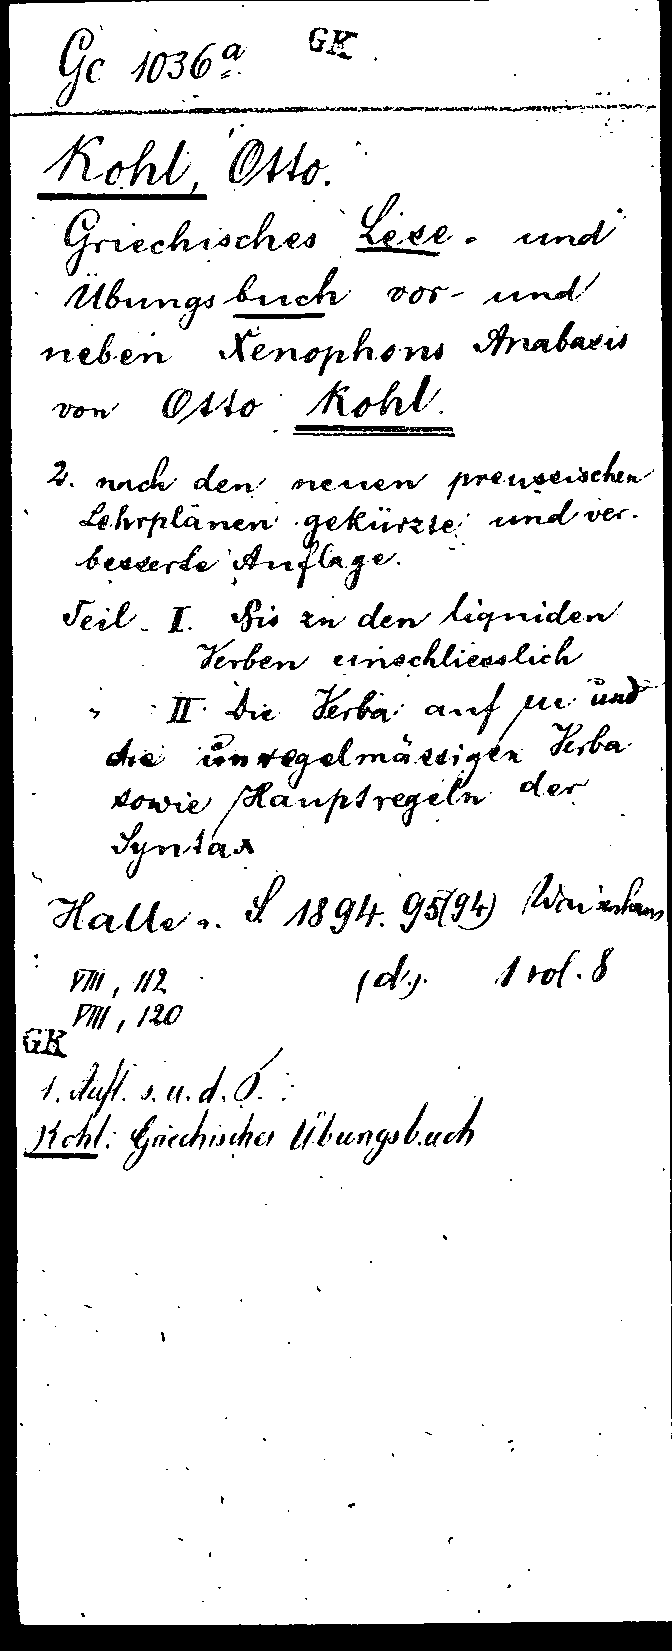 Gc 1036ª GK
Kohl, Otto.
Griechisches Lese- und
Übungsbuch vor- und
neben Xenophons Anabasis
von Otto Kohl.
2. nach den neuen preussischen
Lehrplänen gekürzte und ver-
besserte Auflage.
Teil I. Bis zu den liquiden
Verben einschliesslich
" II. Die Verba auf μι und
die unregelmässigen Verba
sowie Hauptregeln der
Syntax
Halle a. S. 1894. 95(94) Waisenhaus
VIII, 112 (d.). 1 vol. 8
VIII, 120
GK
1. Aufl. s. u. d. T. :
Kohl: Griechisches Übungsbuch